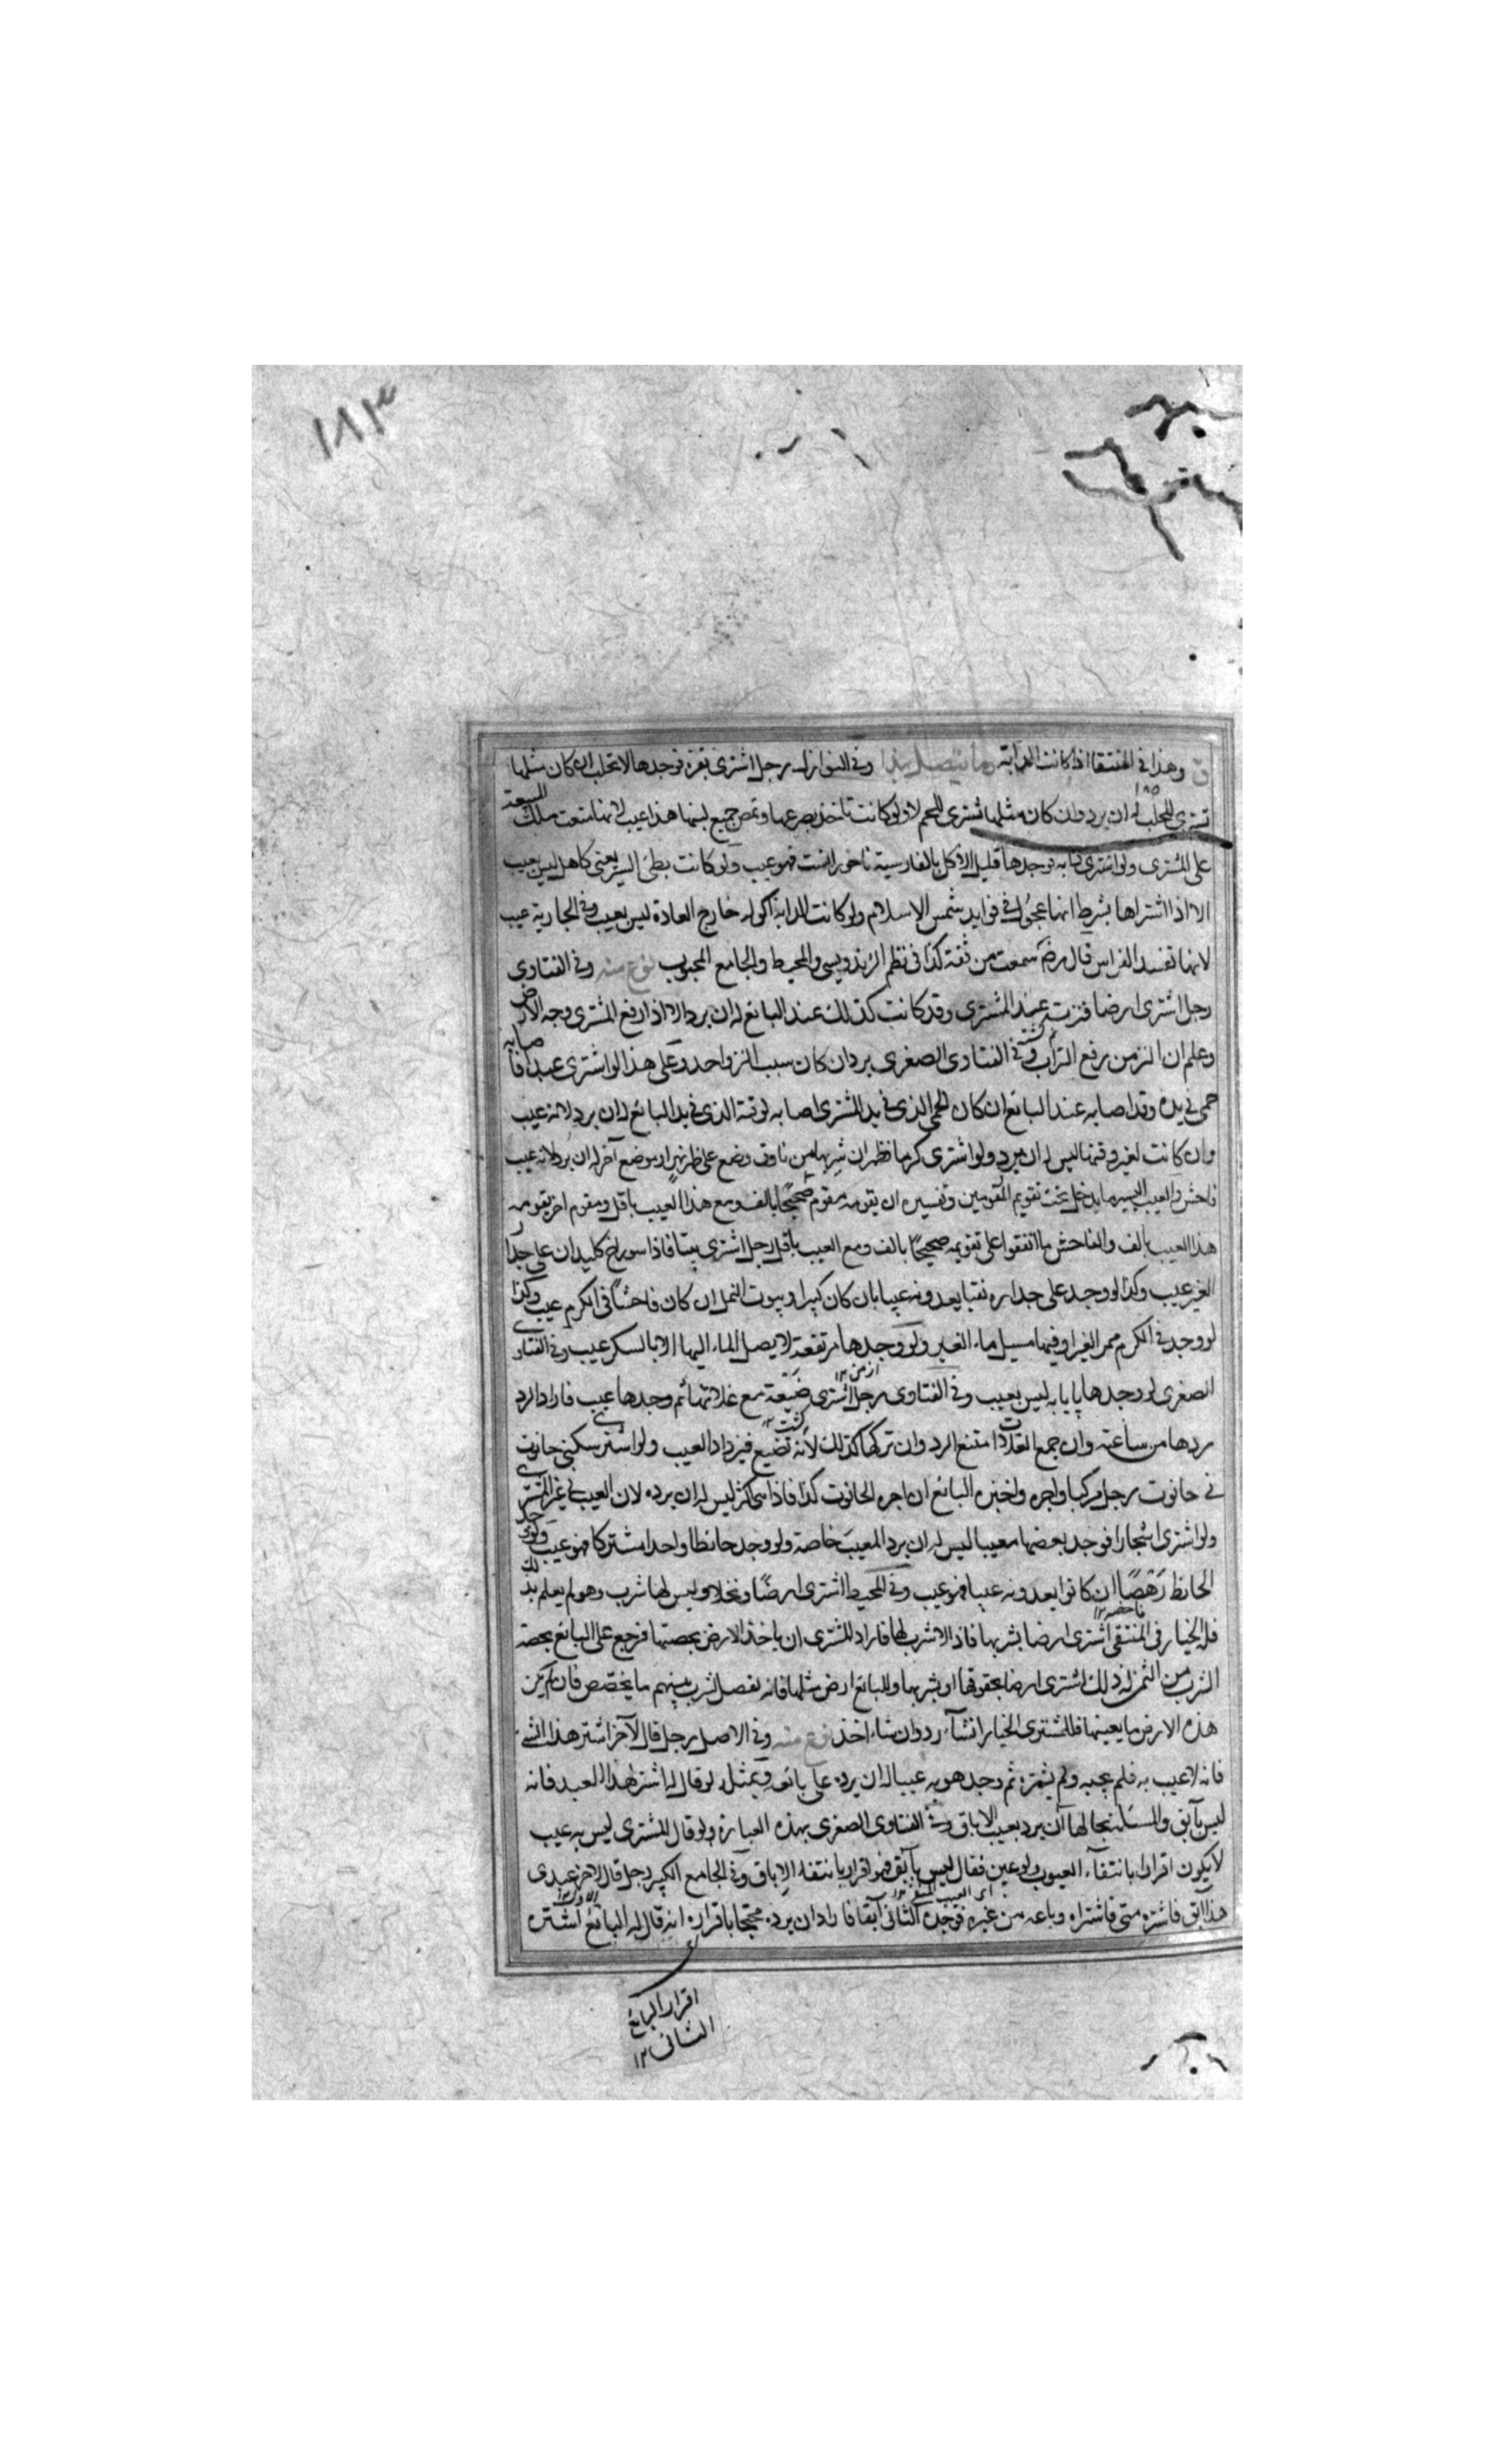 ١٨٣
وهذا في المنتقا اذا كانت الدابة وما يتصل بهذا وفي النوازل رجل اشترى بقرة فوجدها لا تحلب ان كان مثلها
تشترى للحلب له ان يرد وان كان مثلها تشترى للحم لا ولو كانت تاخذ بضرعها وتمص جميع لبنها هذا عيب لانها
على المشترى ولو اشترى دابة فوجدها قليل الاكل بالفارسية فهو عيب ولو كانت بطئ السير يعنى كاهل ليس بعيب
الا اذا اشتراها بشرط انها عجول في فوايد شمس الاسلام ولو كانت الدابة اكولة خارج العادة ليس بعيب وفي الجارية عيب
لانها تفسد الفراش قال رض سمعت من ثقة كذا في نظم الزندويسى والمحيط والجامع المحبوب نوع منه وفي الفتاوى
رجل اشترى ارضا فنزت عند المشترى وقد كانت كذلك عند البائع له ان يرد الا اذا رفع المشترى وجه الارض
وعلم ان النز من رفع التراب وفي الفتاوى الصغرى يرد ان كان سبب النز واحد وعلى هذا لو اشترى عبدا فاصابه
حمى في يده وقد اصابه عند البائع ان كان الحمى الذى في يد المشترى اصابه لوقته الذى في يد البائع له ان يرد لانه عيب
وان كانت لغير وقتها ليس له ان يرد ولو اشترى كرما فظهر ان شربها من ناوق وضع على ظهر نهر او موضع آخر له ان يرد لانه عيب
فاحش والعيب اليسير ما يدخل تحت تقويم المقومين وتفسيره ان يقومه مقوم صحيحا بالف ومع هذا العيب باقل ومقوم اخر يقومه مع
هذا العيب بالف والفاحش ما اتفقوا على تقويمه صحيحا بالف ومع العيب باقل رجل اشترى بيتا فاذا سوراخ كليدان على جدار
الغير عيب وكذا لو وجد على جداره نقبا يعدونه عيبا بان كان كبيرا وبيوت النمل ان كان فاحشا في الكرم عيب وكذا
لو وجد في الكرم ممر الغير او فيها مسيل ماء الغير ولو وجدها مرتفعة لا يصل الماء اليها الا بالسكر عيب وفي الفتاوى
الصغرى لو وجدها پايابه ليس بعيب وفي الفتاوى رجل اشترى ضيعة مع غلاتها ثم وجدها عيب فاراد الرد
ردها من ساعته وان جمع الغلات امتنع الرد وان تركها كذلك لانه تضيع فيزداد العيب ولو اشترى سكنى حانوت
في حانوت رجل مركبا واجره واخبره البائع ان اجرة الحانوت كذا فاذا هي اكثر ليس له ان يرده لان العيب في غير المشترى
ولو اشترى اشجارا فوجد بعضها معيبا ليس له ان يرد المعيب خاصة ولو وجد حائطا واحدا مشتركا فهو عيب ولو وجد
الحائط رهصا ان كانوا يعدونه عيبا فهو عيب وفي المحيط اشترى ارضا ونخلا وليس لها شرب وهو لم يعلم بذلك
فله الخيار في المنتقى اشترى ارضا بشربها فاذا لا شرب لها فاراد المشترى ان ياخذ الارض بحصتها فرجع على البائع بحصة
الشرب من الثمن له ذلك اشترى ارضا بحقوقها او بشربها وللبائع ارض مثلها فانه يفصل الشرب بينهم ما يخصص فان لم يكن
هذه الارض ما يعينها فللمشترى الخيار ان شاء رد وان شاء اخذ نوع منه وفي الاصل رجل قال لآخر اشتر هذا الشئ
فانه لا عيب به فلم يعجبه ولم يشتره ثم وجد هو به عيبا له ان يرده على بائعه وبمثله لو قال له اشتر هذا العبد فانه
ليس بآبق والمسئلة بحالها ان يرد بعيب الاباق وفي الفتاوى الصغرى بهذه العبارة ولو قال المشترى ليس به عيب
لا يكون اقرارا بانتفاء العيوب ولو عين فقال ليس بآبق فهو اقرار بانتفاء الاباق وفي الجامع الكبير رجل قال لاخر عبدى
هذا آبق فاشتره منى فاشتراه وباعه من غيره فوجده الثانى آبقا فاراد ان يرده محتجا باقراره انه قال له البائع اشتره
اقرار البائع
الثانى ١٢